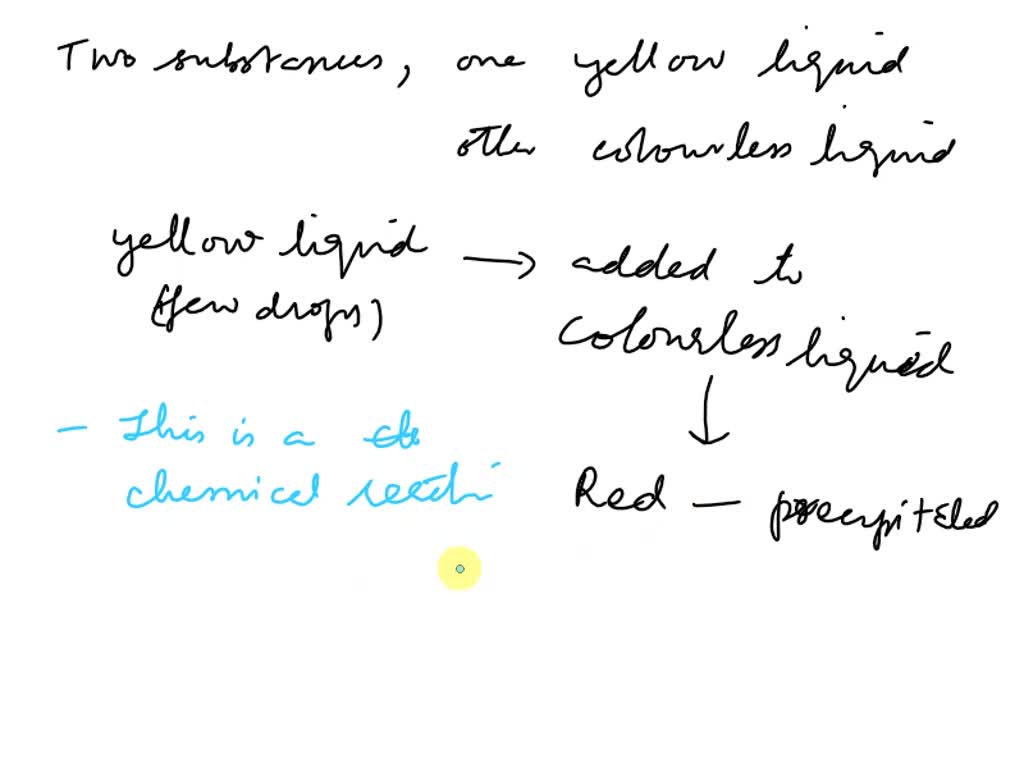 Two substances, one yellow liquid
other colourless liquid
yellow liquid → added to
(few drops) colourless liquid
↓
- This is a
chemical Red —